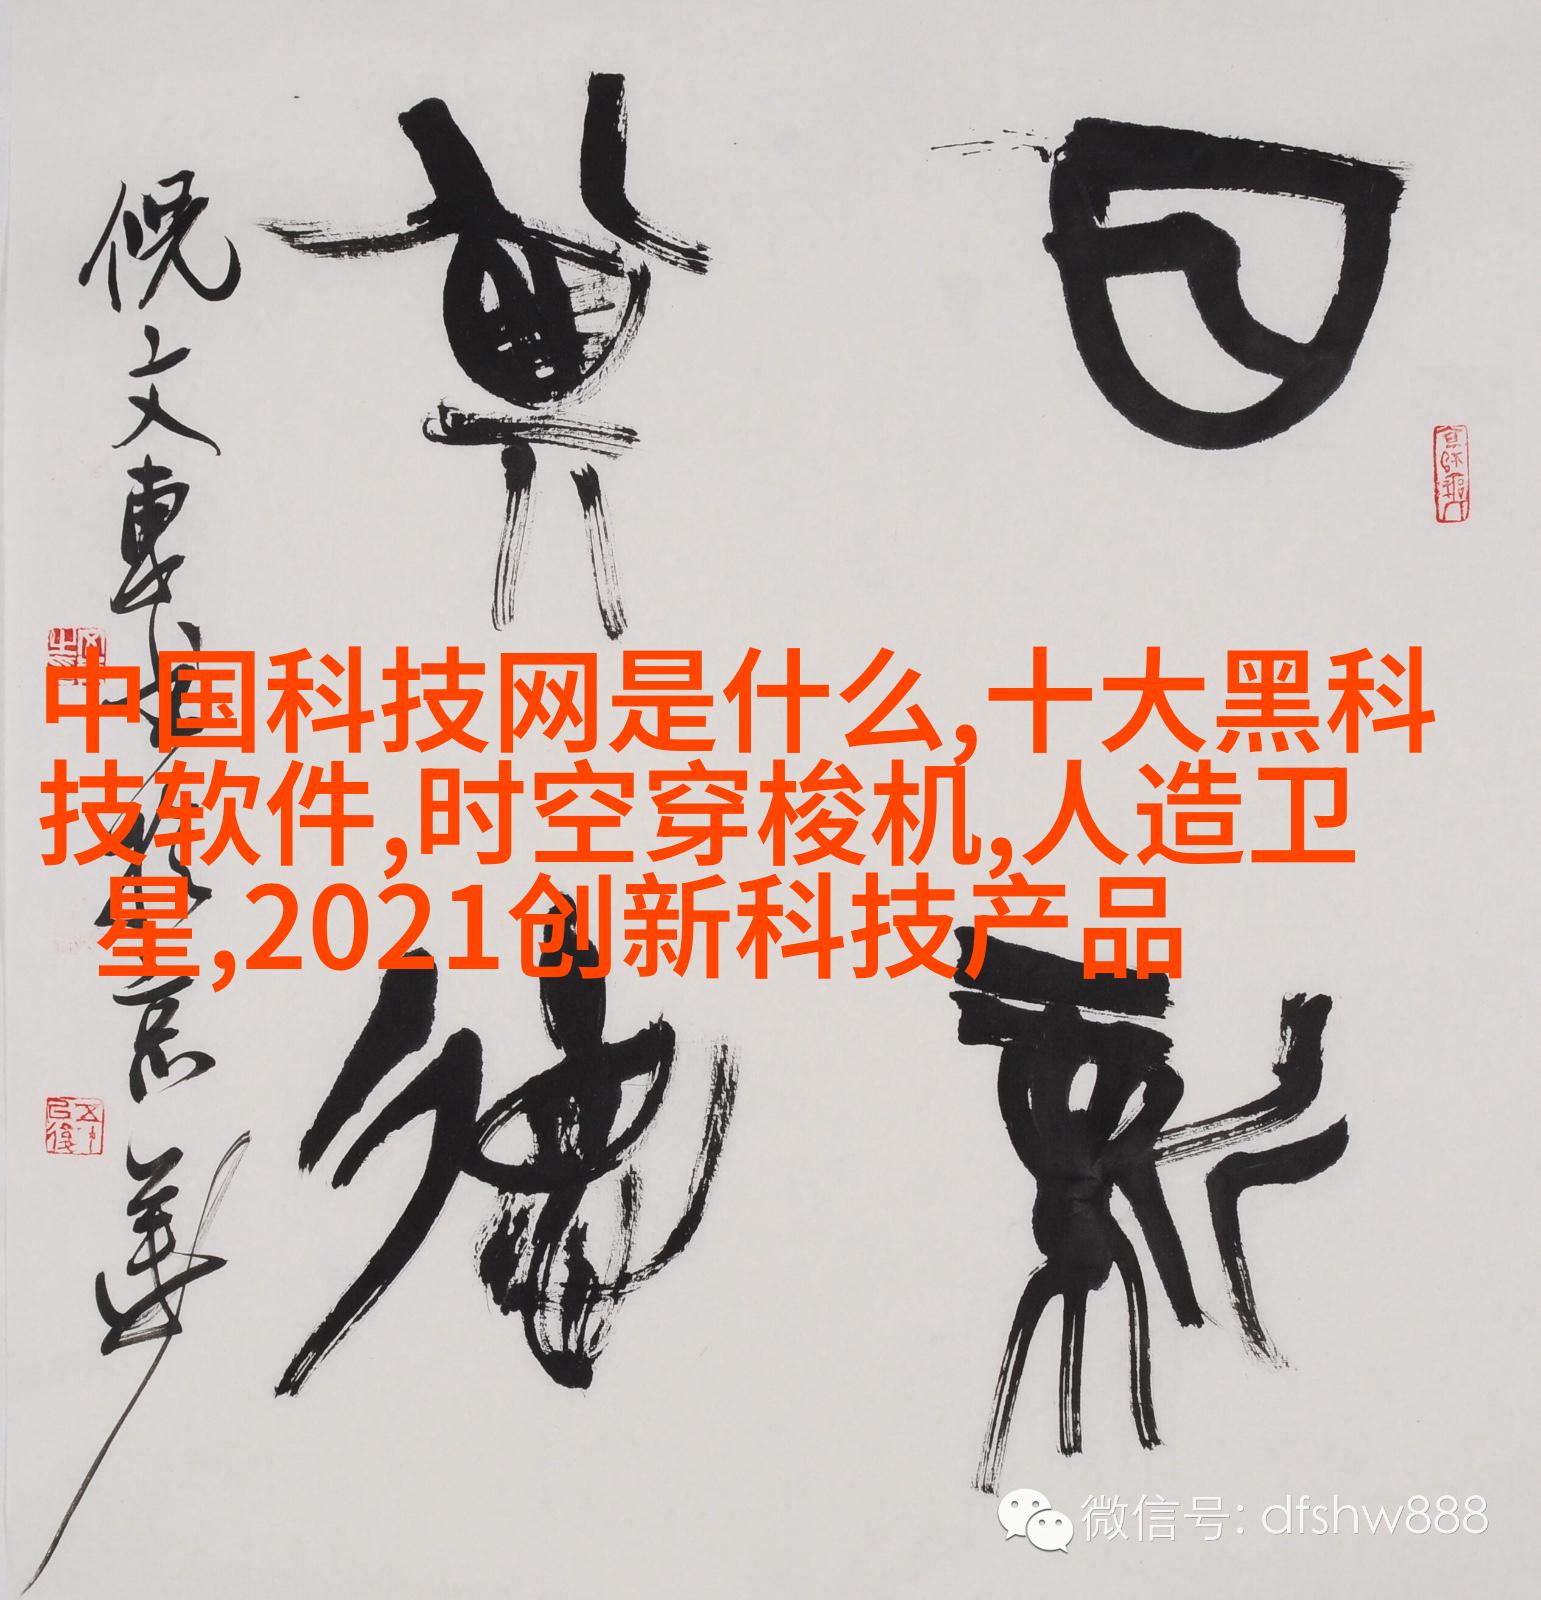 日新
其德
倪文東书於京華
中国科技网是什么,十大黑科
技软件,时空穿梭机,人造卫
星,2021创新科技产品
微信号: dfshw888